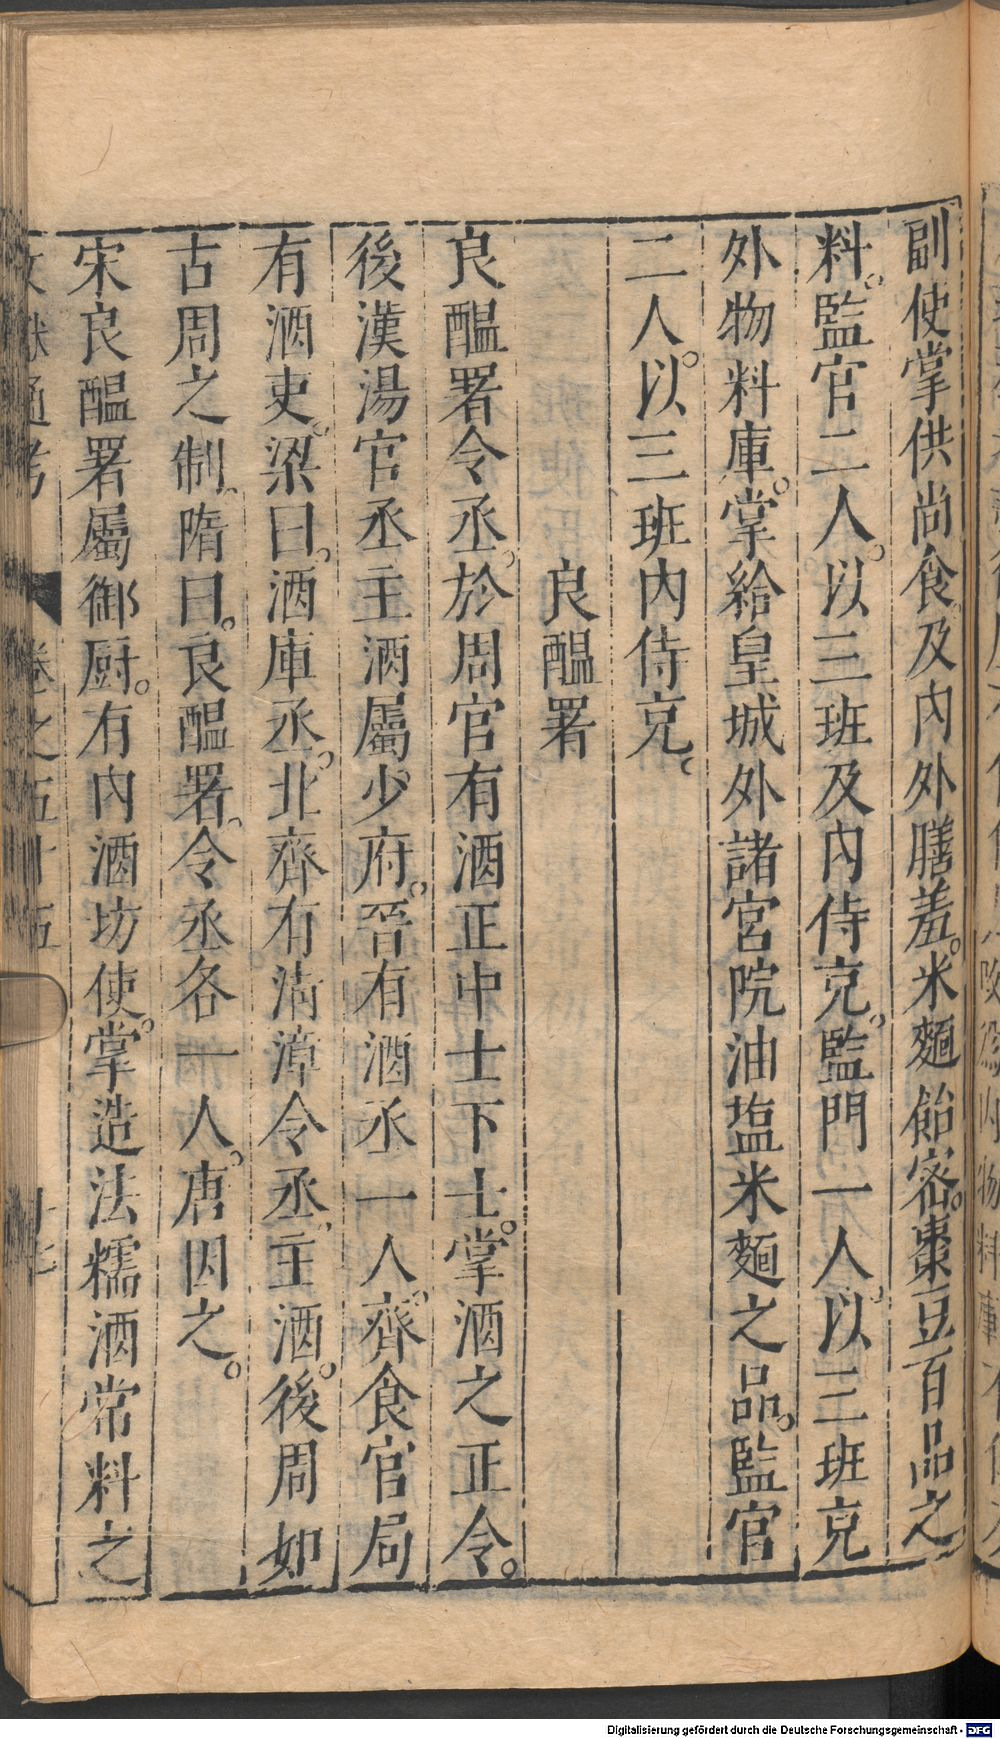 副使掌供尚食及内外膳羞。米麵飴宻。棗豆百品之
料。監官二人。以三班及内侍克。監門一人。以三班克
外物料庫。掌給皇城外諸宮院油塩米麵之品。監官
二人。以三班内侍克。
良醖署
良醖署令丞。於周官有酒正中士下士。掌酒之正令。
後漢湯官丞主酒屬少府。晉有酒丞一人。齊食官局
有酒吏。梁曰。酒庫丞。北齊有清漳令丞。主酒。後周如
古周之制。隋曰。良醖署。令丞各一人。唐因之。
宋良醖署屬御厨。有内酒坊使。掌造法糯酒常料之
文獻通考 卷之五十五 十七
Digitalisierung gefördert durch die Deutsche Forschungsgemeinschaft - DFG